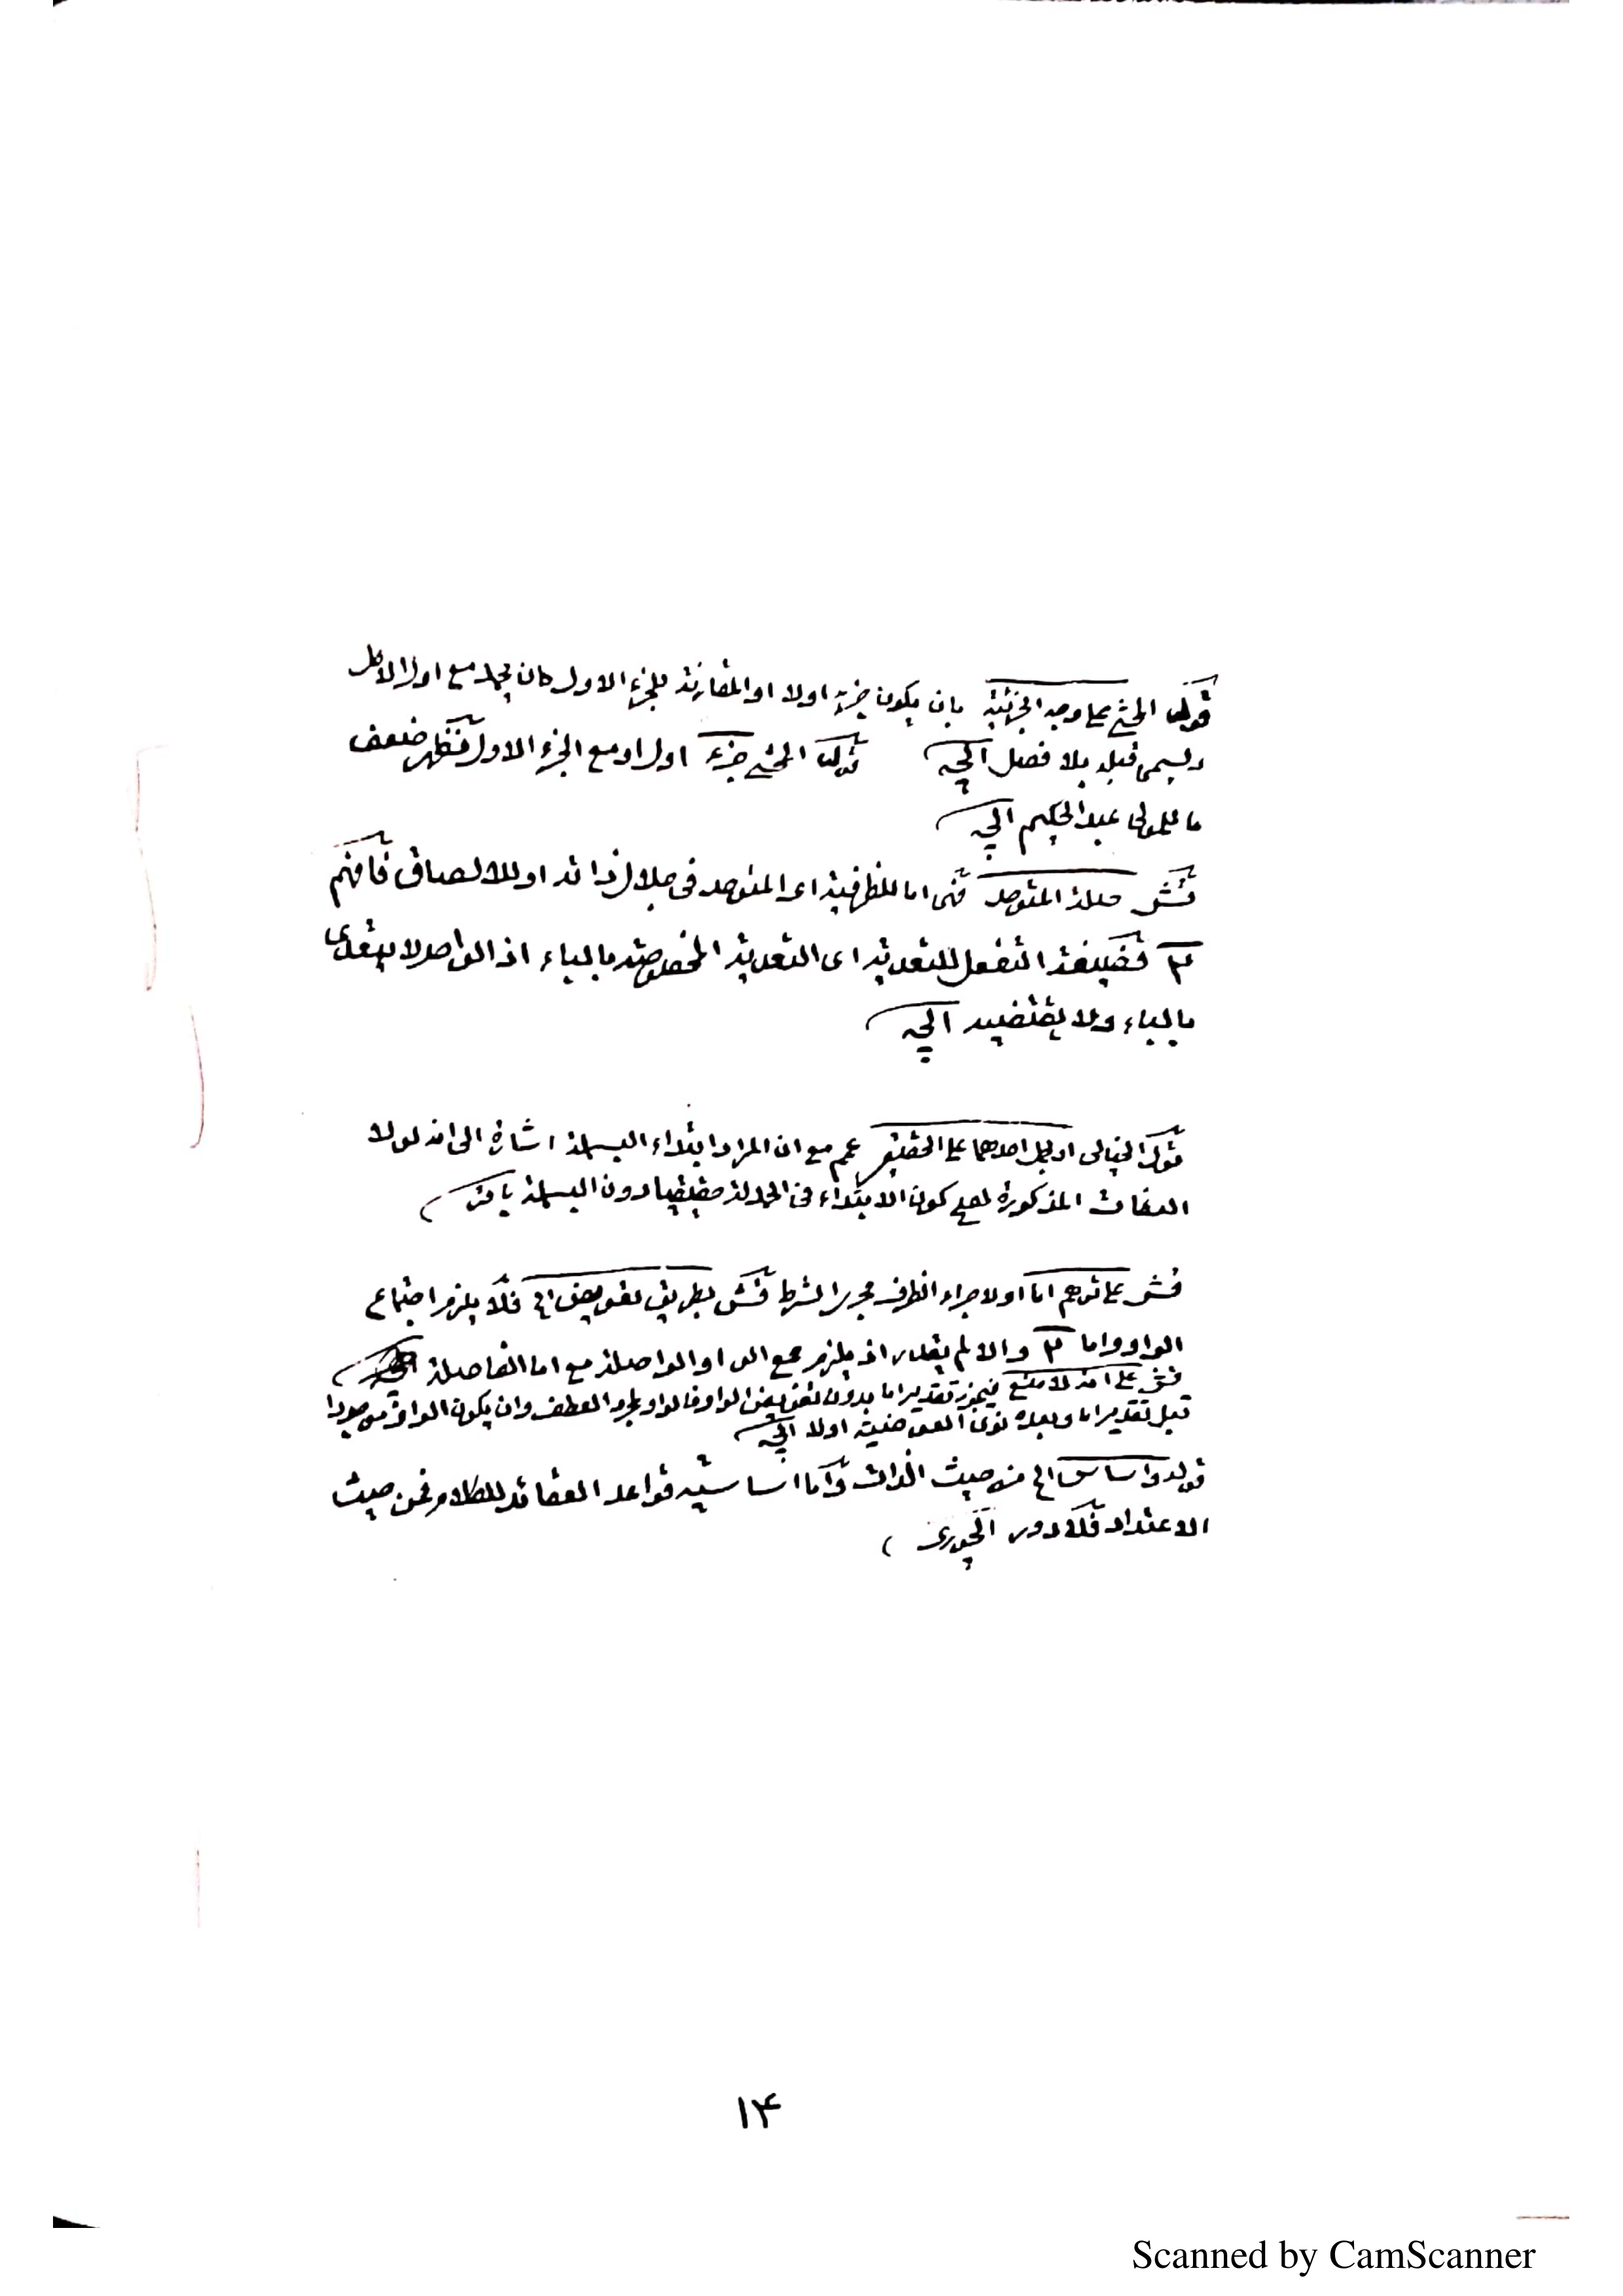 قوله المحشي على وجه الجزئية بان يكون جزء اولا او المقارنة للجزء الاول كان يحمد مع اول الاكل
ويسمى قبله بلا فصل قوله المحشي جزء اولا او مع الجزء الاول فظهر ضعف
ما للمولى عبد الحكيم
بجلال المتوحد فهي اما للظرفية اى المتوحد فى جلال ذاته او للالصاق فافهم
فصيغة التفعل للتعدية اى التعدية المخصوصة بالباء اذ الواحد لا يتعدى
بالباء ولا يقتضيه
قول الخيالى او يحمل احدهما على الحقيقى عمم مع ان المراد ابتداء البسملة اشارة الى انه لولا
المذكورة لصلح كون الابتداء فى الحمدلة حقيقيا دون البسملة
على توهم اما اولاجراء الظرف مجرى الشرط بطريق تعويض الخ فلا يلزم اجتماع
الواو واما والا لم يقدر اذ يلزم جمع الواو الواصلة مع اما الفاصلة
على انه لا منع فيجوز تقدير اما بدون تعويض الواو فالواو لمجرد العطف وان يكون الواو موجودا
قبل تقدير اما وبعده نوى العوضية اولا
قوله واساس الخ من حيث الذات واما اساسية قواعد العقائد للكلام فمن حيث
الاعتداد فلا دور
١٤
Scanned by CamScanner